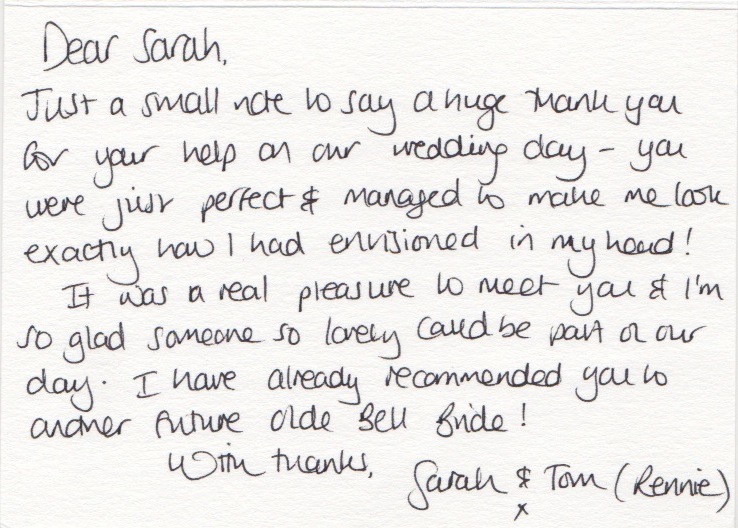 Dear Sarah,
Just a small note to say a huge thank you
for your help on our wedding day - you
were just perfect & managed to make me look
exactly how I had envisioned in my head!
It was a real pleasure to meet you & I'm
so glad someone so lovely could be part of our
day. I have already recommended you to
another future Olde Bell Bride!
With thanks,
Sarah & Tom (Rennie)
x